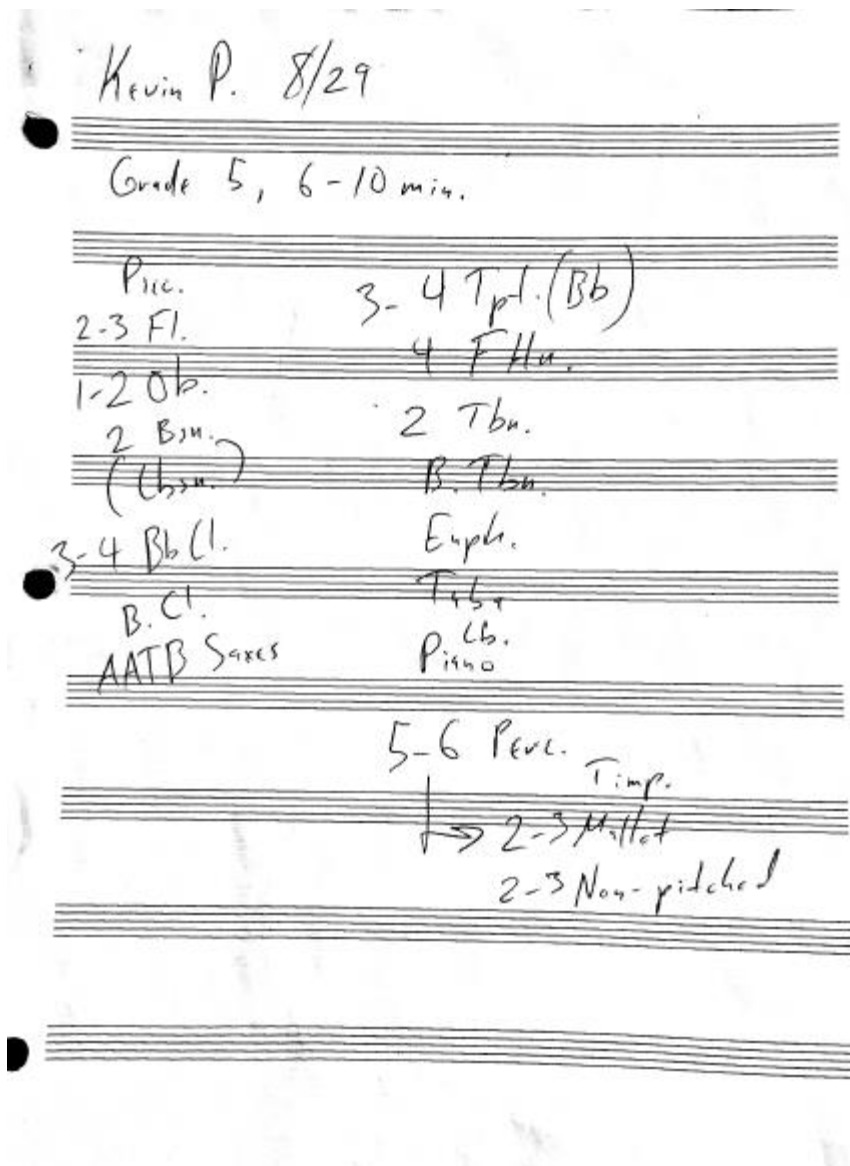 Kevin P. 8/29
Grade 5, 6-10 min.
Picc.
2-3 Fl.
1-2 Ob.
2 Bsn.
(Cbsn.)
3-4 Bb Cl.
B. Cl.
AATB Saxes
3-4 Tpt. (Bb)
4 F Hn.
2 Tbn.
B. Tbn.
Euph.
Tuba
Cb.
Piano
5-6 Perc.
Timp.
2-3 Mallet
2-3 Non-pitched